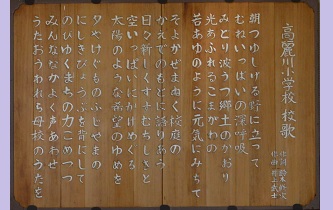 高麗川小学校 校歌
朝つゆしげる背に立って
むねいっぱいの深呼吸
みどり波うつ郷土のかおり
光あふれるこまがわの
若あゆのように元気にみちて
そよかぜまねく校庭の
かえでのもとに語りあう
日々新しくすすむちしきと
空いっぱいにかけめぐる
太陽のような希望のゆめを
夕やけぐものふじやまの
にしきびょうぶを背にして
のびゆくまちの力こめつつ
みんななかよく声あわせ
うたおうわれら母校のうたを